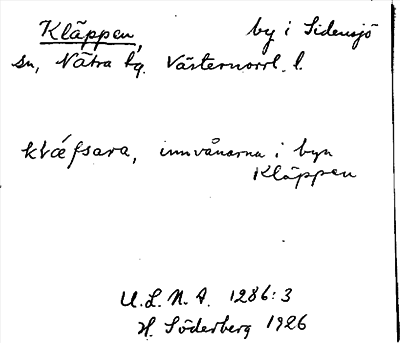 Kläppen, by i Sidensjö
sn, Nätra tg. Västernorrl. l.
kl&aelig;́fsara, innvånarna i byn
Kläppen
U.L.M.A. 1286:3
H. Söderberg 1926